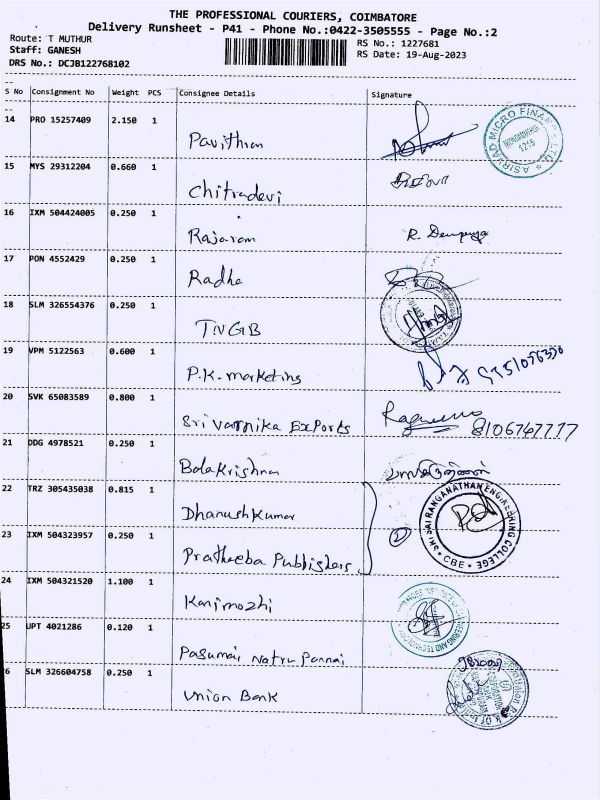 THE PROFESSIONAL COURIERS, COIMBATORE
Delivery Runsheet - P41 - Phone No.:0422-3505555 - Page No.:2
Route: T MUTHUR
RS No.: 1227681
Staff: GANESH
RS Date: 19-Aug-2023
DRS No.: DCJB122768102
S No Consignment No Weight PCS Consignee Details Signature
14 PRO 15257409 2.150 1
Pavithran
ASIRVAD MICRO FINANCE LTD
15 MYS 29312204 0.660 1
Chitradevi
16 IXM 504424005 0.250 1
Rajaram
17 PON 4552429 0.250 1
Radha
18 SLM 326554376 0.250 1
TNGB
19 VPM 5122563 0.600 1
P.K. marketing
20 SVK 65083589 0.800 1
Sri Varnika Exports 8106747777
21 DDG 4978521 0.250 1
Balakrishnan
22 TRZ 305435038 0.815 1
Dhanushkumar
SRI RANGANATHAN ENGINEERING COLLEGE
CBE
23 IXM 504323957 0.250 1
Pratheeba Publishers
2
24 IXM 504321520 1.100 1
Kanimozhi
25 UPT 4021286 0.120 1
Pasumai Natru Pannai
26 SLM 326604758 0.250 1
Union Bank